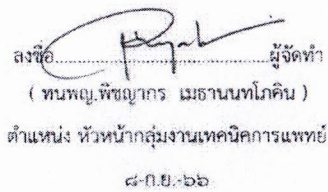 ลงชื่อ....................................ผู้จัดทำ
( ทนพญ.พิชญากร เมธานนทโภคิน )
ตำแหน่ง หัวหน้ากลุ่มงานเทคนิคการแพทย์
๘-ก.ย.-๖๖